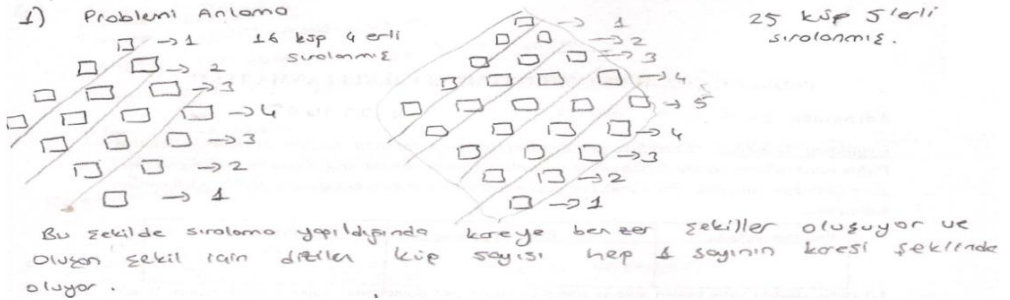 1) Problemi Anlama
16 küp 4 erli
sıralanmış
→1
→2
→3
→4
→3
→2
→1
25 küp 5'erli
sıralanmış.
→1
→2
→3
→4
→5
→4
→3
→2
→1
Bu şekilde sıralama yapıldığında kareye benzer şekiller oluşuyor ve
oluşan şekil için dizilen küp sayısı hep 1 sayının karesi şeklinde
oluyor.